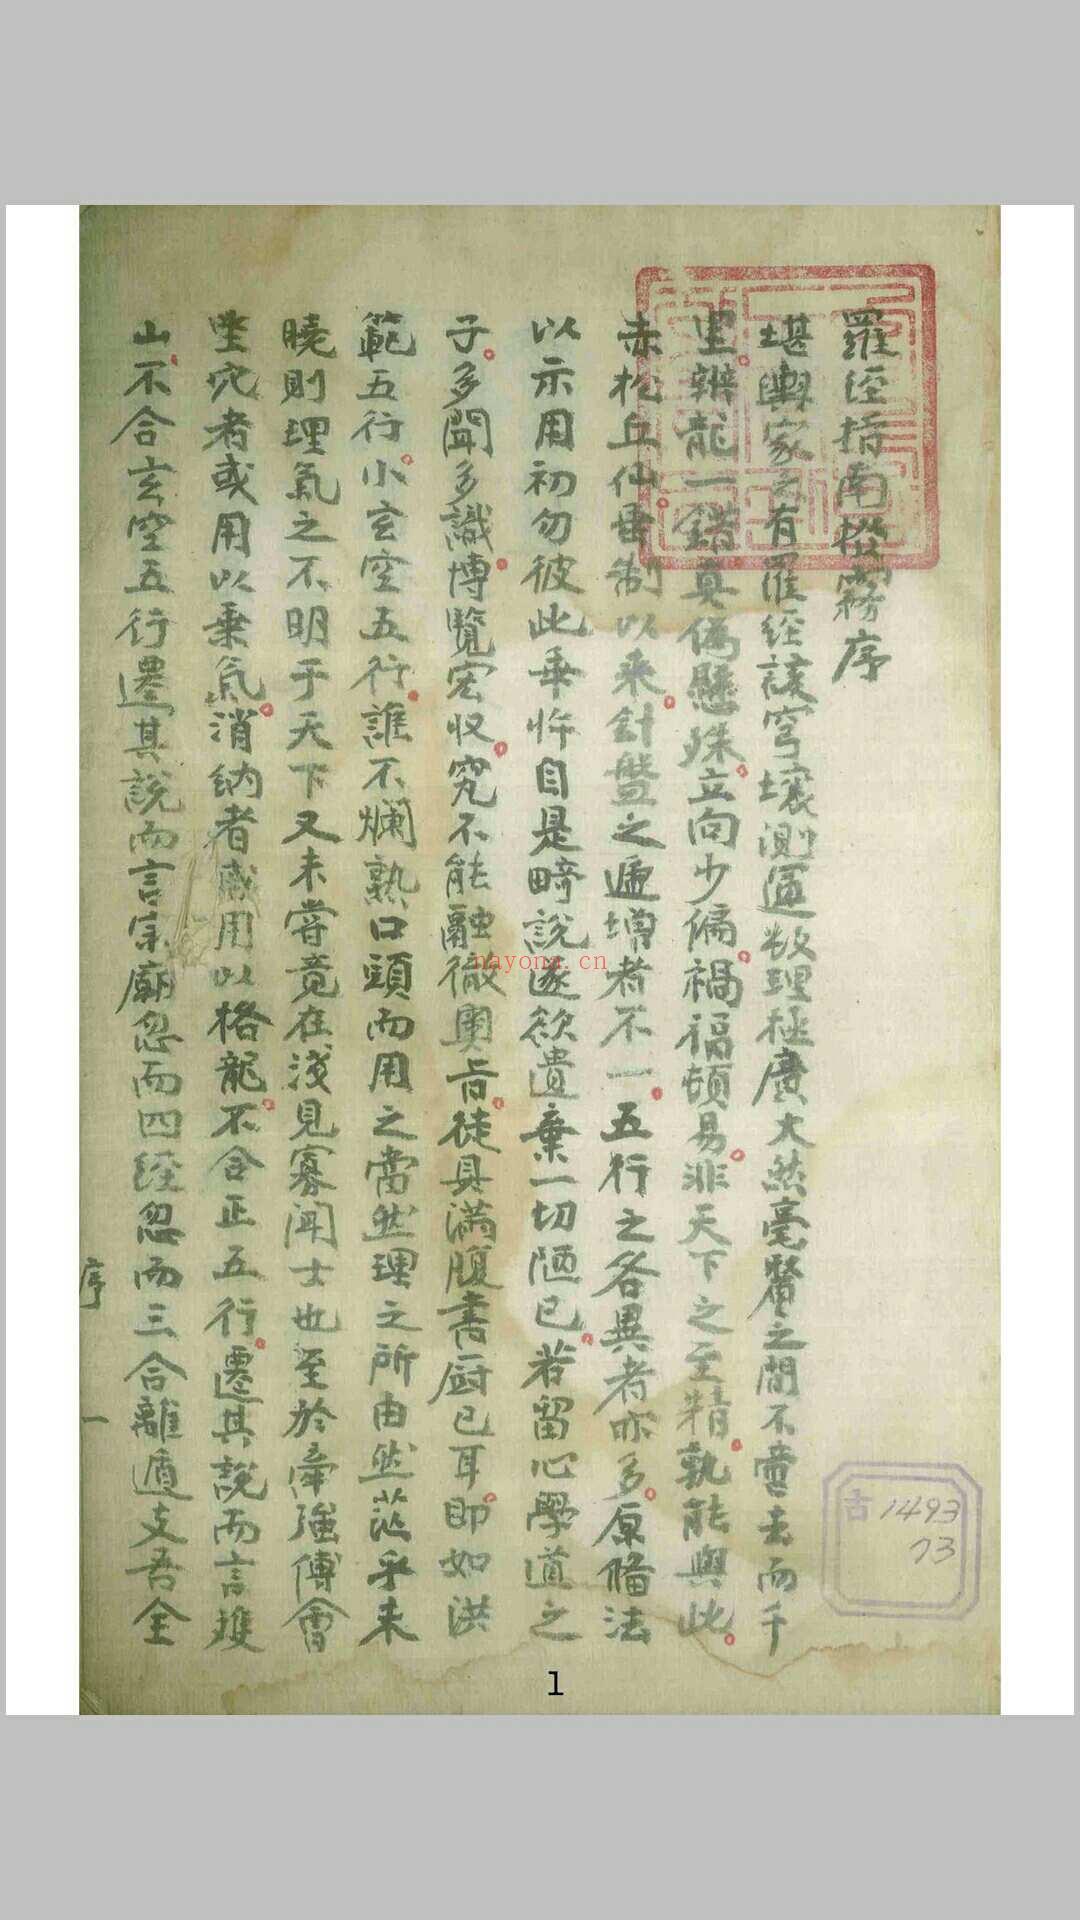 羅經指南撥霧序
堪輿家之有羅經該穹壤測運數理極廣大然毫釐之間不啻去而千
里辨龍一錯真偽懸殊立向少偏禍福頓易非天下之至精孰能與此
赤松丘仙畱制以来針盤之遞增者不一五行之各異者亦多原備法
以示用初勿彼此乖忤自是畸說遂欲遺棄一切陋已若留心學道之
子多聞多識博覽宏収究不能融徹奧旨徒具滿腹書厨已耳即如洪
範五行小玄空五行誰不爛熟口頭而用之當然理之所由然茫乎未
曉則理氣之不明于天下又未嘗竟在淺見寡聞士也至於牽強傅會
坐穴者或用以乗氣消納者或用以格龍不合正五行遷其說而言雙
山不合玄空五行遷其說而言宗廟忽而四經忽而三合離遁支吾全
序
一
古 1493
73
1
nayona.cn